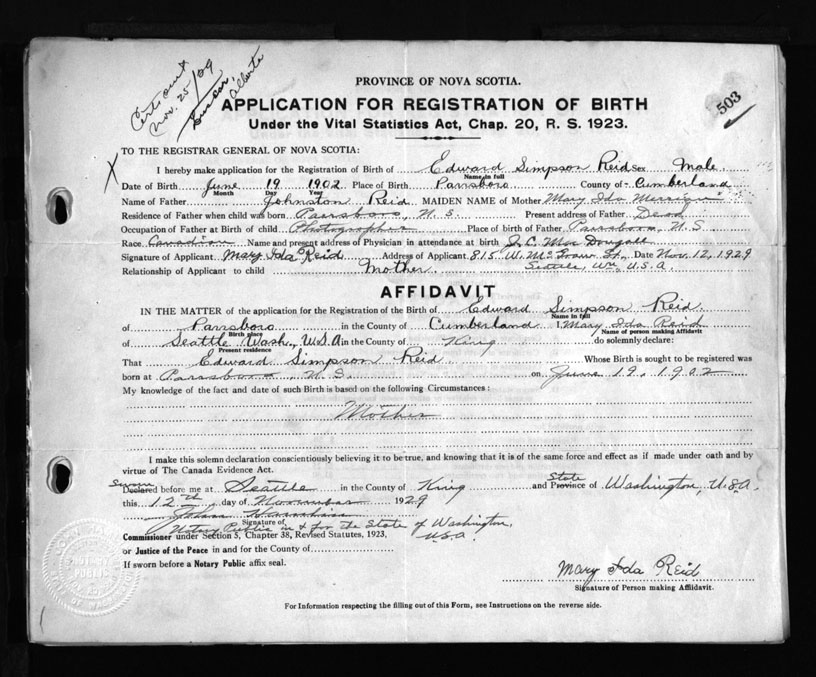 Cert. out
Nov. 25/29
Alberta
503
PROVINCE OF NOVA SCOTIA.
APPLICATION FOR REGISTRATION OF BIRTH
Under the Vital Statistics Act, Chap. 20, R. S. 1923.
TO THE REGISTRAR GENERAL OF NOVA SCOTIA:
X
I hereby make application for the Registration of Birth of Edward Simpson Reid Sex Male
Name in full
Date of Birth June 19 1902 Place of Birth Parrsboro County of Cumberland
Month Day Year
Name of Father Johnston Reid MAIDEN NAME of Mother Mary Ida
Residence of Father when child was born Parrsboro, N. S. Present address of Father Dead
Occupation of Father at Birth of child Photographer Place of birth of Father Parrsboro, N. S.
Race Canadian Name and present address of Physician in attendance at birth J. C. MacDougall
Signature of Applicant Mary Ida Reid Address of Applicant 815 W. McGraw St. Date Nov. 12, 1929
Relationship of Applicant to child Mother Seattle, Wn. U.S.A.
AFFIDAVIT
IN THE MATTER of the application for the Registration of the Birth of Edward Simpson Reid
Name in full
of Parrsboro in the County of Cumberland I, Mary Ida Reid
Birth place Name of person making Affidavit
of Seattle Wash., U.S.A in the County of King do solemnly declare:
Present residence
That Edward Simpson Reid Whose Birth is sought to be registered was
born at Parrsboro, N. S. on June 19, 1902
My knowledge of the fact and date of such Birth is based on the following Circumstances:
Mother
I make this solemn declaration conscientiously believing it to be true, and knowing that it is of the same force and effect as if made under oath and by
virtue of The Canada Evidence Act.
Sworn State
Declared before me at Seattle in the County of King and Province of Washington, U.S.A.
this 12th day of November 1929
John
Signature of
Notary Public in & for the State of Washington,
U.S.A.
Commissioner under Section 5, Chapter 38, Revised Statutes, 1923,
or Justice of the Peace in and for the County of
If sworn before a Notary Public affix seal.
Mary Ida Reid
Signature of Person making Affidavit.
For Information respecting the filling out of this Form, see Instructions on the reverse side.